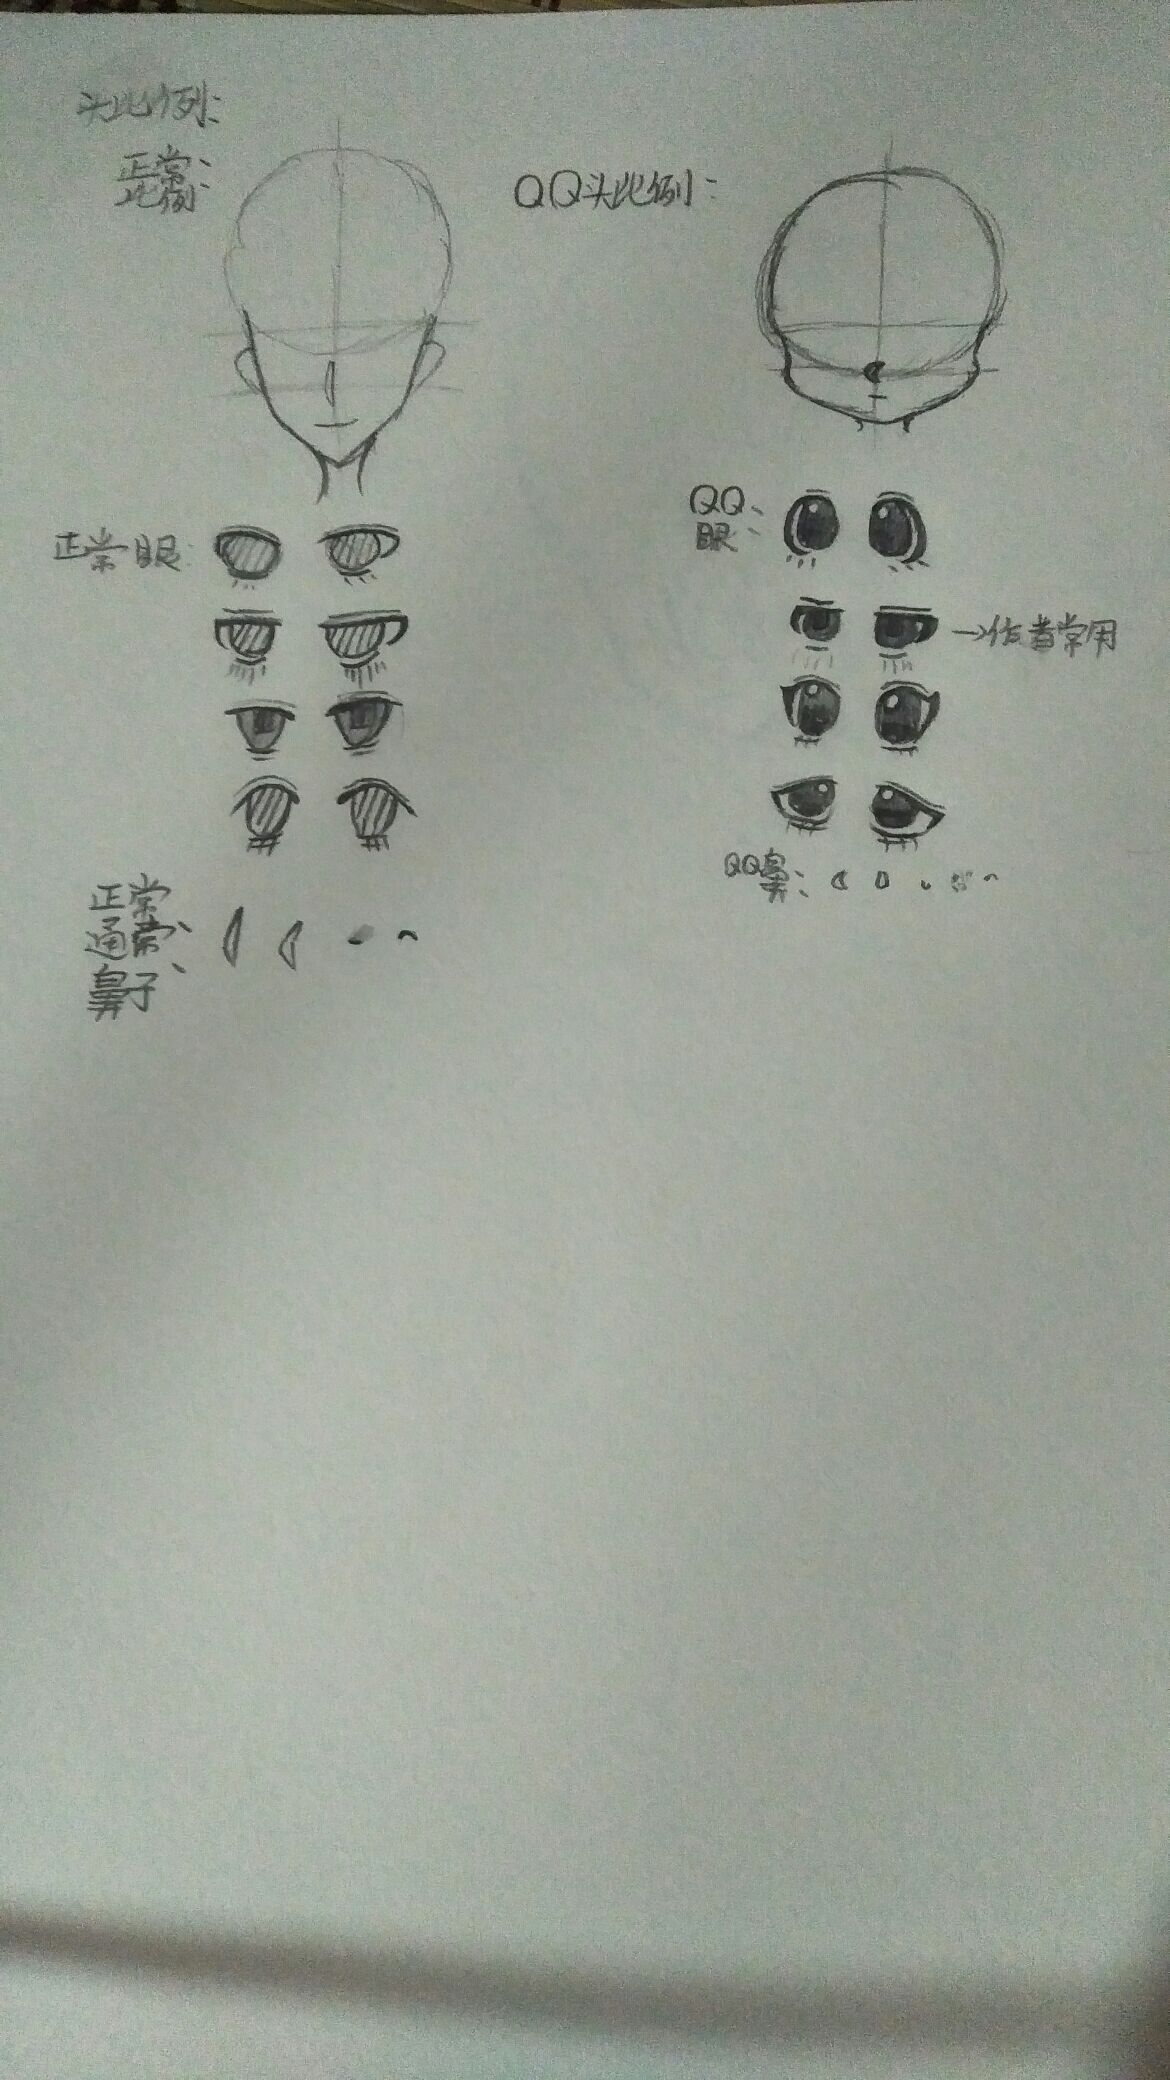 头比例:
正常
比例:
QQ头比例:
正常眼:
QQ
眼:
→作者常用
QQ鼻:
正常
通常
鼻子: